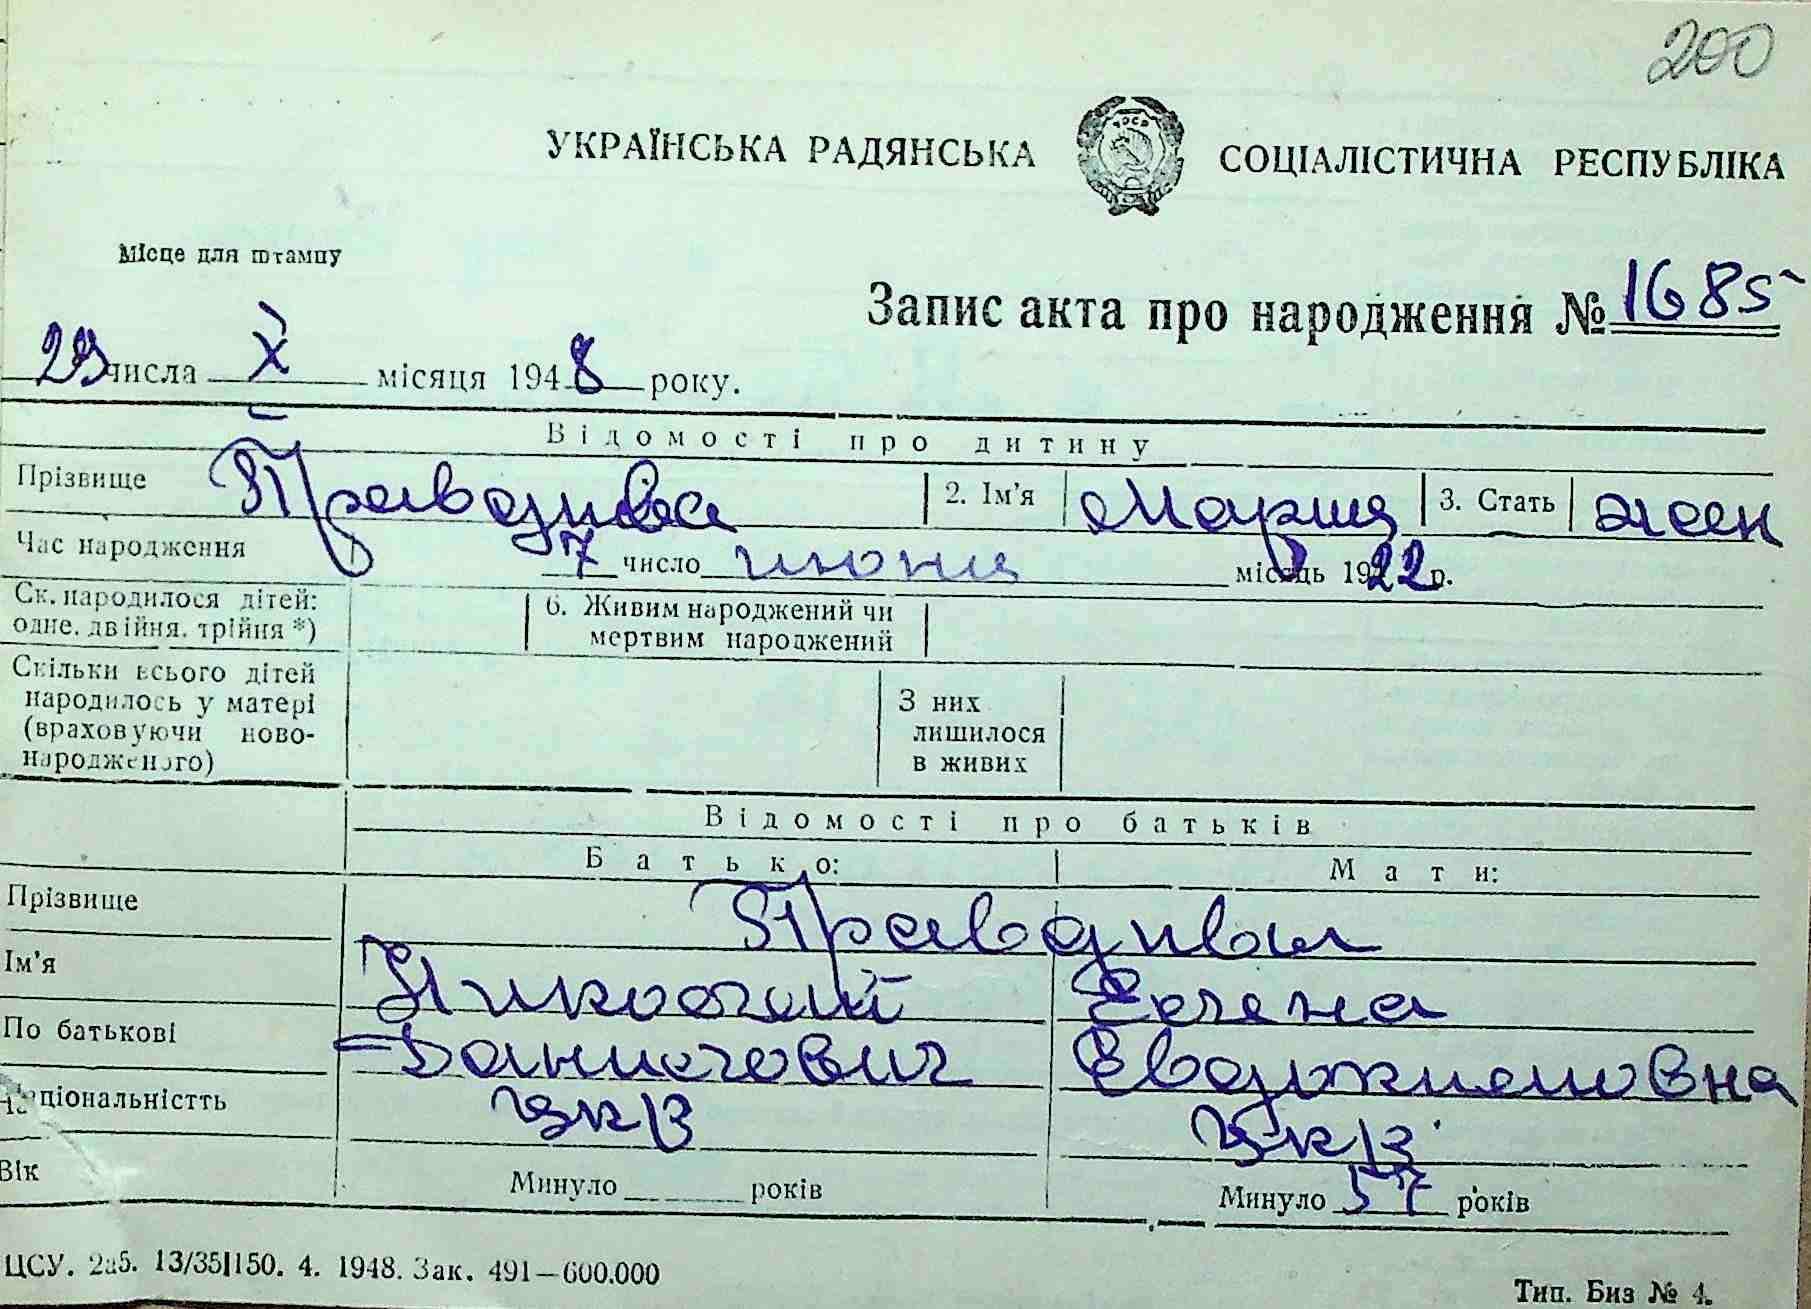 200
УКРАЇНСЬКА РАДЯНСЬКА СОЦІАЛІСТИЧНА РЕСПУБЛІКА
Місце для штампу
Запис акта про народження № 1685
23 числа X місяця 1948 року.
Відомості про дитину
Прізвище Правдива 2. Ім'я Мария 3. Стать жен
Час народження 7 число июня місяць 1922 р.
Ск. народилося дітей: одне, двійня, трійня *) 6. Живим народжений чи мертвим народжений
Скільки всього дітей
народилось у матері З них
(враховуючи ново- лишилося
народженого) в живих
Відомості про батьків
Батько: Мати:
Прізвище Правдивы
Ім'я Николай Елена
По батькові Данилович Евдокимовна
Національністть укр укр
Вік Минуло років Минуло 57 років
ЦСУ. 2а5. 13/35|150. 4. 1948. Зак. 491—600.000
Тип. Биз № 4.